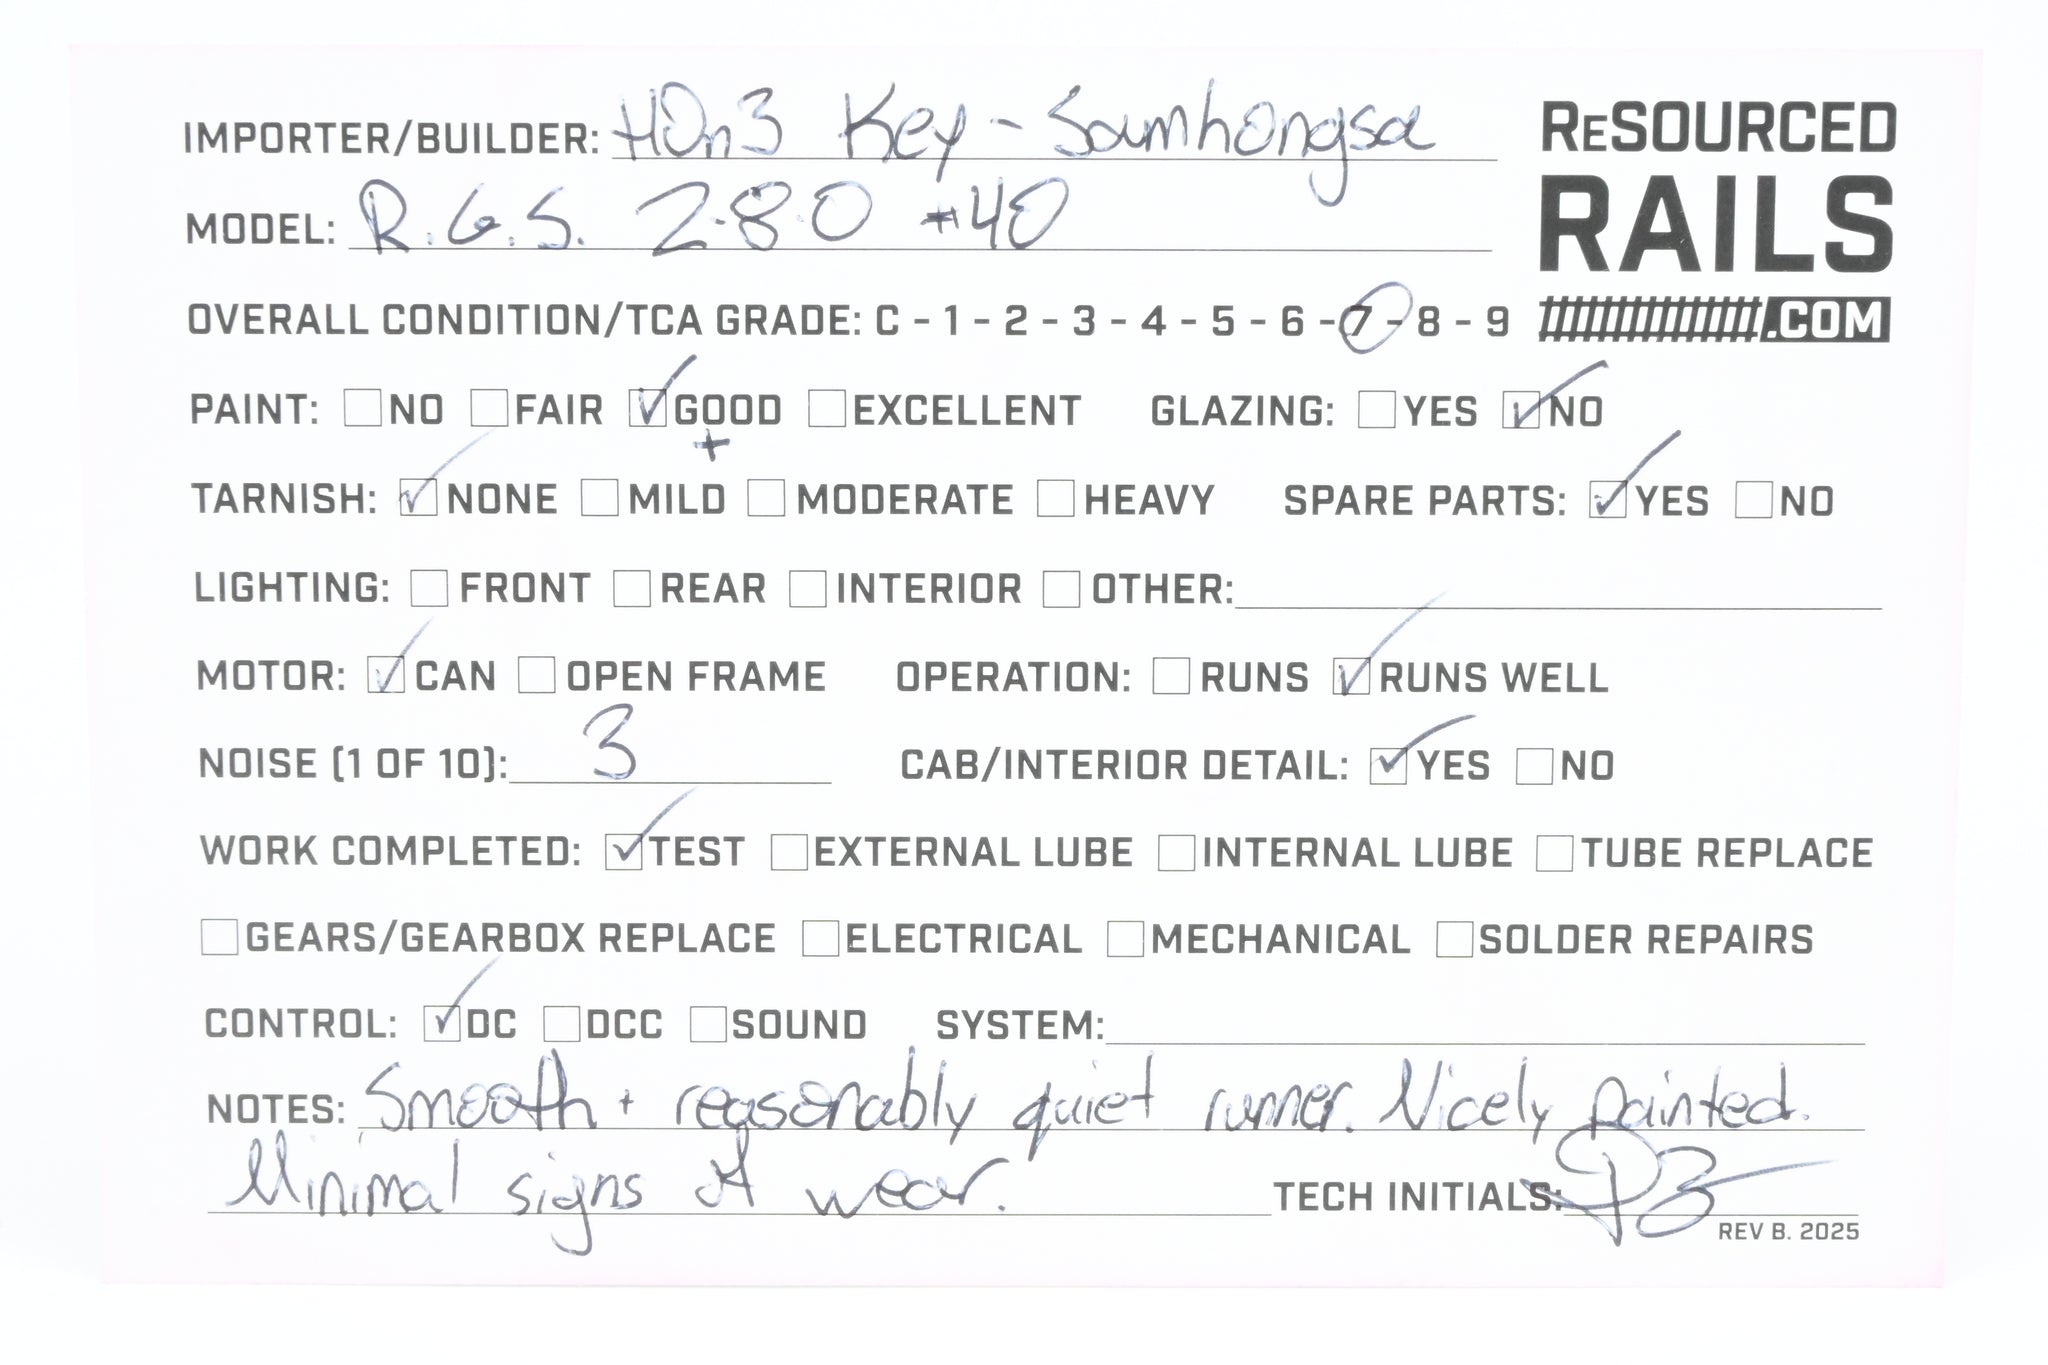 IMPORTER/BUILDER: HOn3 Key - Samhongsa
ReSOURCED
RAILS
.COM
MODEL: R.G.S. 2-8-0 #40
OVERALL CONDITION/TCA GRADE: C - 1 - 2 - 3 - 4 - 5 - 6 - 7 - 8 - 9
PAINT: ☐NO ☐FAIR ☑GOOD ☐EXCELLENT GLAZING: ☐YES ☑NO
+
TARNISH: ☑NONE ☐MILD ☐MODERATE ☐HEAVY SPARE PARTS: ☑YES ☐NO
LIGHTING: ☐FRONT ☐REAR ☐INTERIOR ☐OTHER:
MOTOR: ☑CAN ☐OPEN FRAME OPERATION: ☐RUNS ☑RUNS WELL
NOISE (1 OF 10): 3 CAB/INTERIOR DETAIL: ☑YES ☐NO
WORK COMPLETED: ☑TEST ☐EXTERNAL LUBE ☐INTERNAL LUBE ☐TUBE REPLACE
☐GEARS/GEARBOX REPLACE ☐ELECTRICAL ☐MECHANICAL ☐SOLDER REPAIRS
CONTROL: ☑DC ☐DCC ☐SOUND SYSTEM:
NOTES: Smooth + reasonably quiet runner. Nicely painted.
Minimal signs of wear. TECH INITIALS:
REV B. 2025